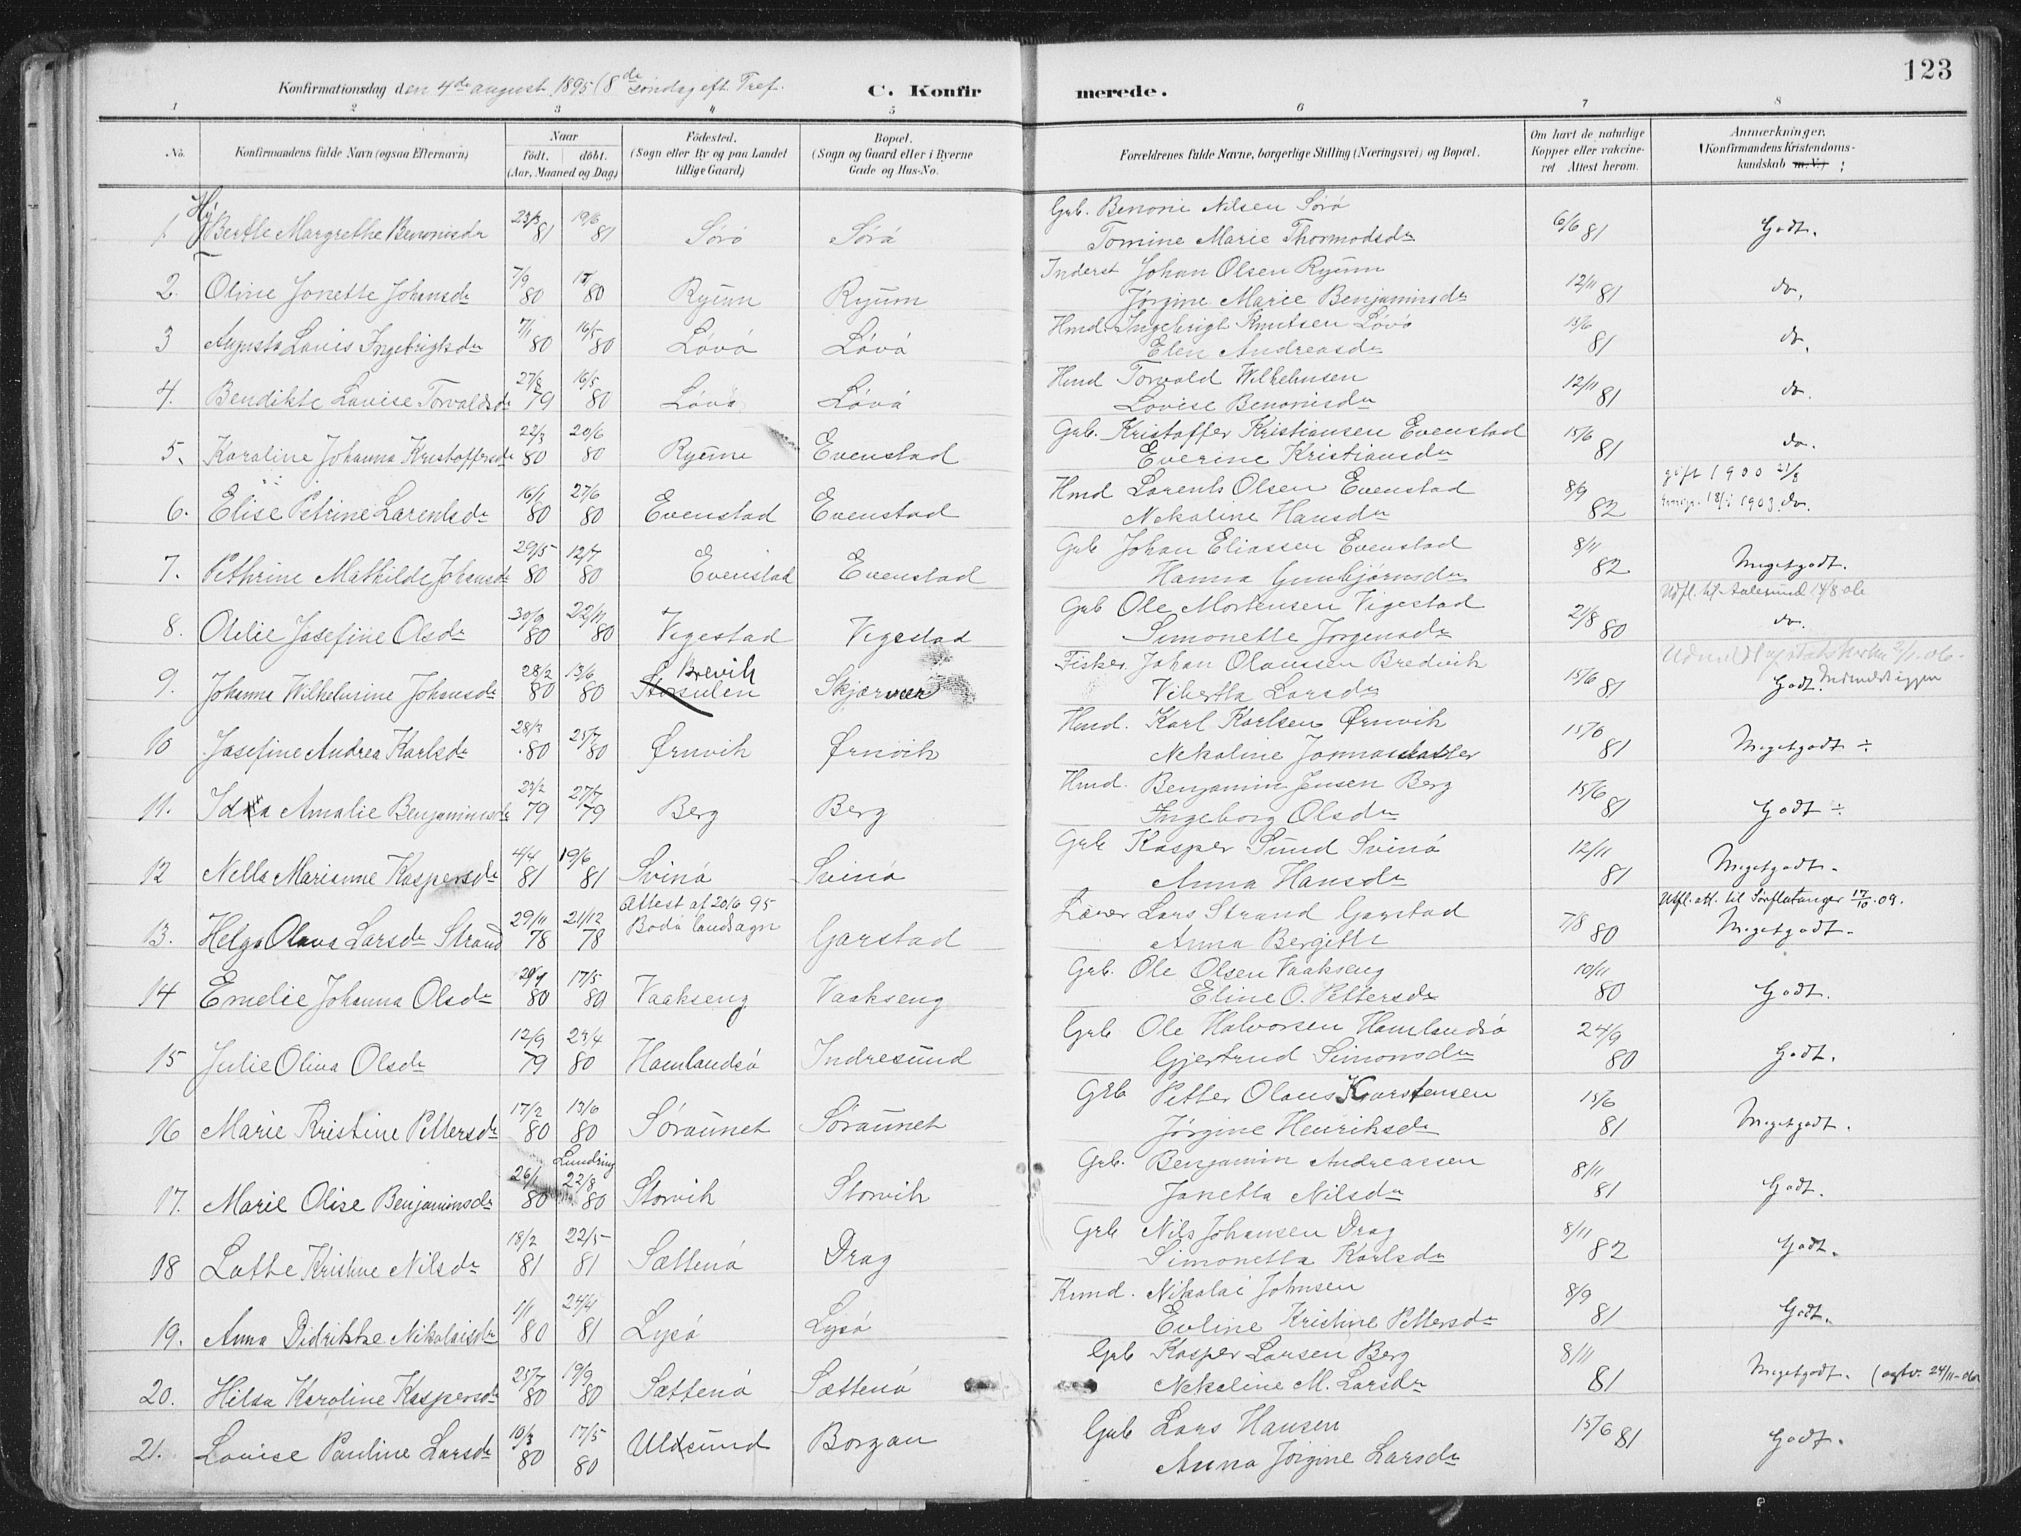 123
Konfirmationsdag den 4de august 1895 (8de søndag eft. Tref.
C. Konfirmerede.
1 2 3 4 5 6 7 8
No. Konfirmandens fulde Navn (ogsaa Efternavn) Naar født. døbt. (Aar, Maaned og Dag) Fødested. (Sogn eller By og paa Landet tillige Gaard) Bopæl. (Sogn og Gaard eller i Byerne Gade og Hus-No. Forældrenes fulde Navne, borgerlige Stilling (Næringsvei) og Bopæl. Om havt de naturlige Kopper eller vakcineret Attest herom. Anmærkninger. (Konfirmandens Kristendomskundskab m.V.)
1 Berthe Margrethe Benonisdr 23/3 81 19/6 81 Sørø Sørø Grb. Benoni Nilsen Sørø 6/6 81 Godt.
Tomine Marie Thormodsdr
2. Oline Jonette Johansdr 7/9 80 80 Ryum Ryum Inderst Johan Olsen Ryum 12/11 81 do.
Jørgine Marie Benjaminsdr
3 Augusta Lovis Ingebrigtsdr 7/1 80 16/5 80 Løvø Løvø Hmd. Ingebrigt Knutsen Løvø 15/6 81 do.
Elen Andreasdr
4. Bendikte Lovise Torvaldsdr 27/8 79 16/5 80 Løvø Løvø Hmd Torvald Wilhelmsen 12/11 81 do.
Lovise Benonisdr
5. Karoline Johanna Kristoffersdr 22/3 80 20/6 80 Ryum Evenstad Grb. Kristoffer Kristiansen Evenstad 15/6 81 do.
Everine Kristiansdr
6. Elise Petrine Larentsdr 16/1 80 27/6 80 Evenstad Evenstad Hmd Larents Olsen Evenstad 8/9 82 gift 1900 21/8
Nekoline Hansdr 1903. do.
7. Pethrine Mathilde Johansdr 29/5 80 12/7 80 Evenstad Evenstad Grb Johan Eliassen Evenstad 8/11 82 Megetgodt.
Hanna Gunbjørnsdr
8. Otelie Josefine Olsdr 30/9 80 22/11 80 Vegestad Vegestad Grb Ole Mortensen Vigestad 21/8 80 Udfl. til Aalesund 14/8 06
Simonette Jørgensdr do.
9. Johanna Wilhelmine Johansdr 28/2 80 13/6 80 Storsulen Brevik Skjærvær Fisker Johan Olaussen Bredvik 15/6 81 Godt.
Vibertta Larsdr
10 Josefine Andrea Karlsdr 28/3 80 25/7 80 Ørnvik Ørnvik Hmd. Karl Karlsen Ørnvik 15/6 81 Megetgodt ÷
Nekoline Jonnasdatter
11. Ida Amalie Benjaminsdr 23/2 79 27/7 79 Berg Berg Hmd. Benjamin Jensen Berg 15/6 81 Godt ÷
Ingeborg Olsdr
12 Nella Marianne Kaspersdr 4/4 81 19/6 81 Svinø Svinø Grb Kasper Sund Svinø 12/11 81 Megetgodt.
Anna Hansdr
13. Helga Olava Larsdr Strand 29/11 78 21/12 78 Attest af 20/6 95 Bodø landsogn Garstad Lærer Lars Strand Garstad 7/8 80 Utfl. att. til Sørflatanger 17/10.09.
Anna Bergitte Megetgodt.
14 Emelie Johanna Olsdr 29/1 80 17/5 80 Vaakseng Vaakseng Grb. Ole Olsen Vaakseng 10/11 80 Godt.
Eline O. Pettersdr
15 Julie Oliva Olsdr 12/9 79 23/4 80 Hamlandsø Indresund Grb Ole Halvorsen Hamlandsø 24/9 80 Godt.
Gjertrud Simonsdr
16 Marie Kristine Pettersdr 17/2 80 13/6 80 Søraunet Søraunet Grb Petter Olaus Karstensen 15/6 81 Megetgodt.
Jørgine Henriksdr
17. Marie Olise Benjaminsdr 26/1 80 Lundring 22/8 80 Storvik Storvik Grb. Benjamin Andreassen 8/11 81 Godt.
Janetta Nilsdr
18 Lotte Kristine Nilsdr 18/2 81 22/5 81 Sættenø Drag Grb Nils Johansen Drag 8/11 82 Godt.
Simonetta Karlsdr
19. Anna Didrikke Nikolaisdr 1/1 80 24/4 81 Lysø Lysø Nikolai Johnsen 8/9 81 Godt.
Evline Kristine Pettersdr
20. Hilda Karoline Kaspersdr 25/7 80 19/9 80 Sættenø Sættenø Grb Kasper Larsen Berg 8/11 81 Megetgodt. 24/11-06
Nekoline M. Larsdr
21. Lovise Pauline Larsdr 10/3 80 17/5 80 Uldsund Borgan Grb Lars Hansen 15/6 81 Godt.
Anna Jørgine Larsdr